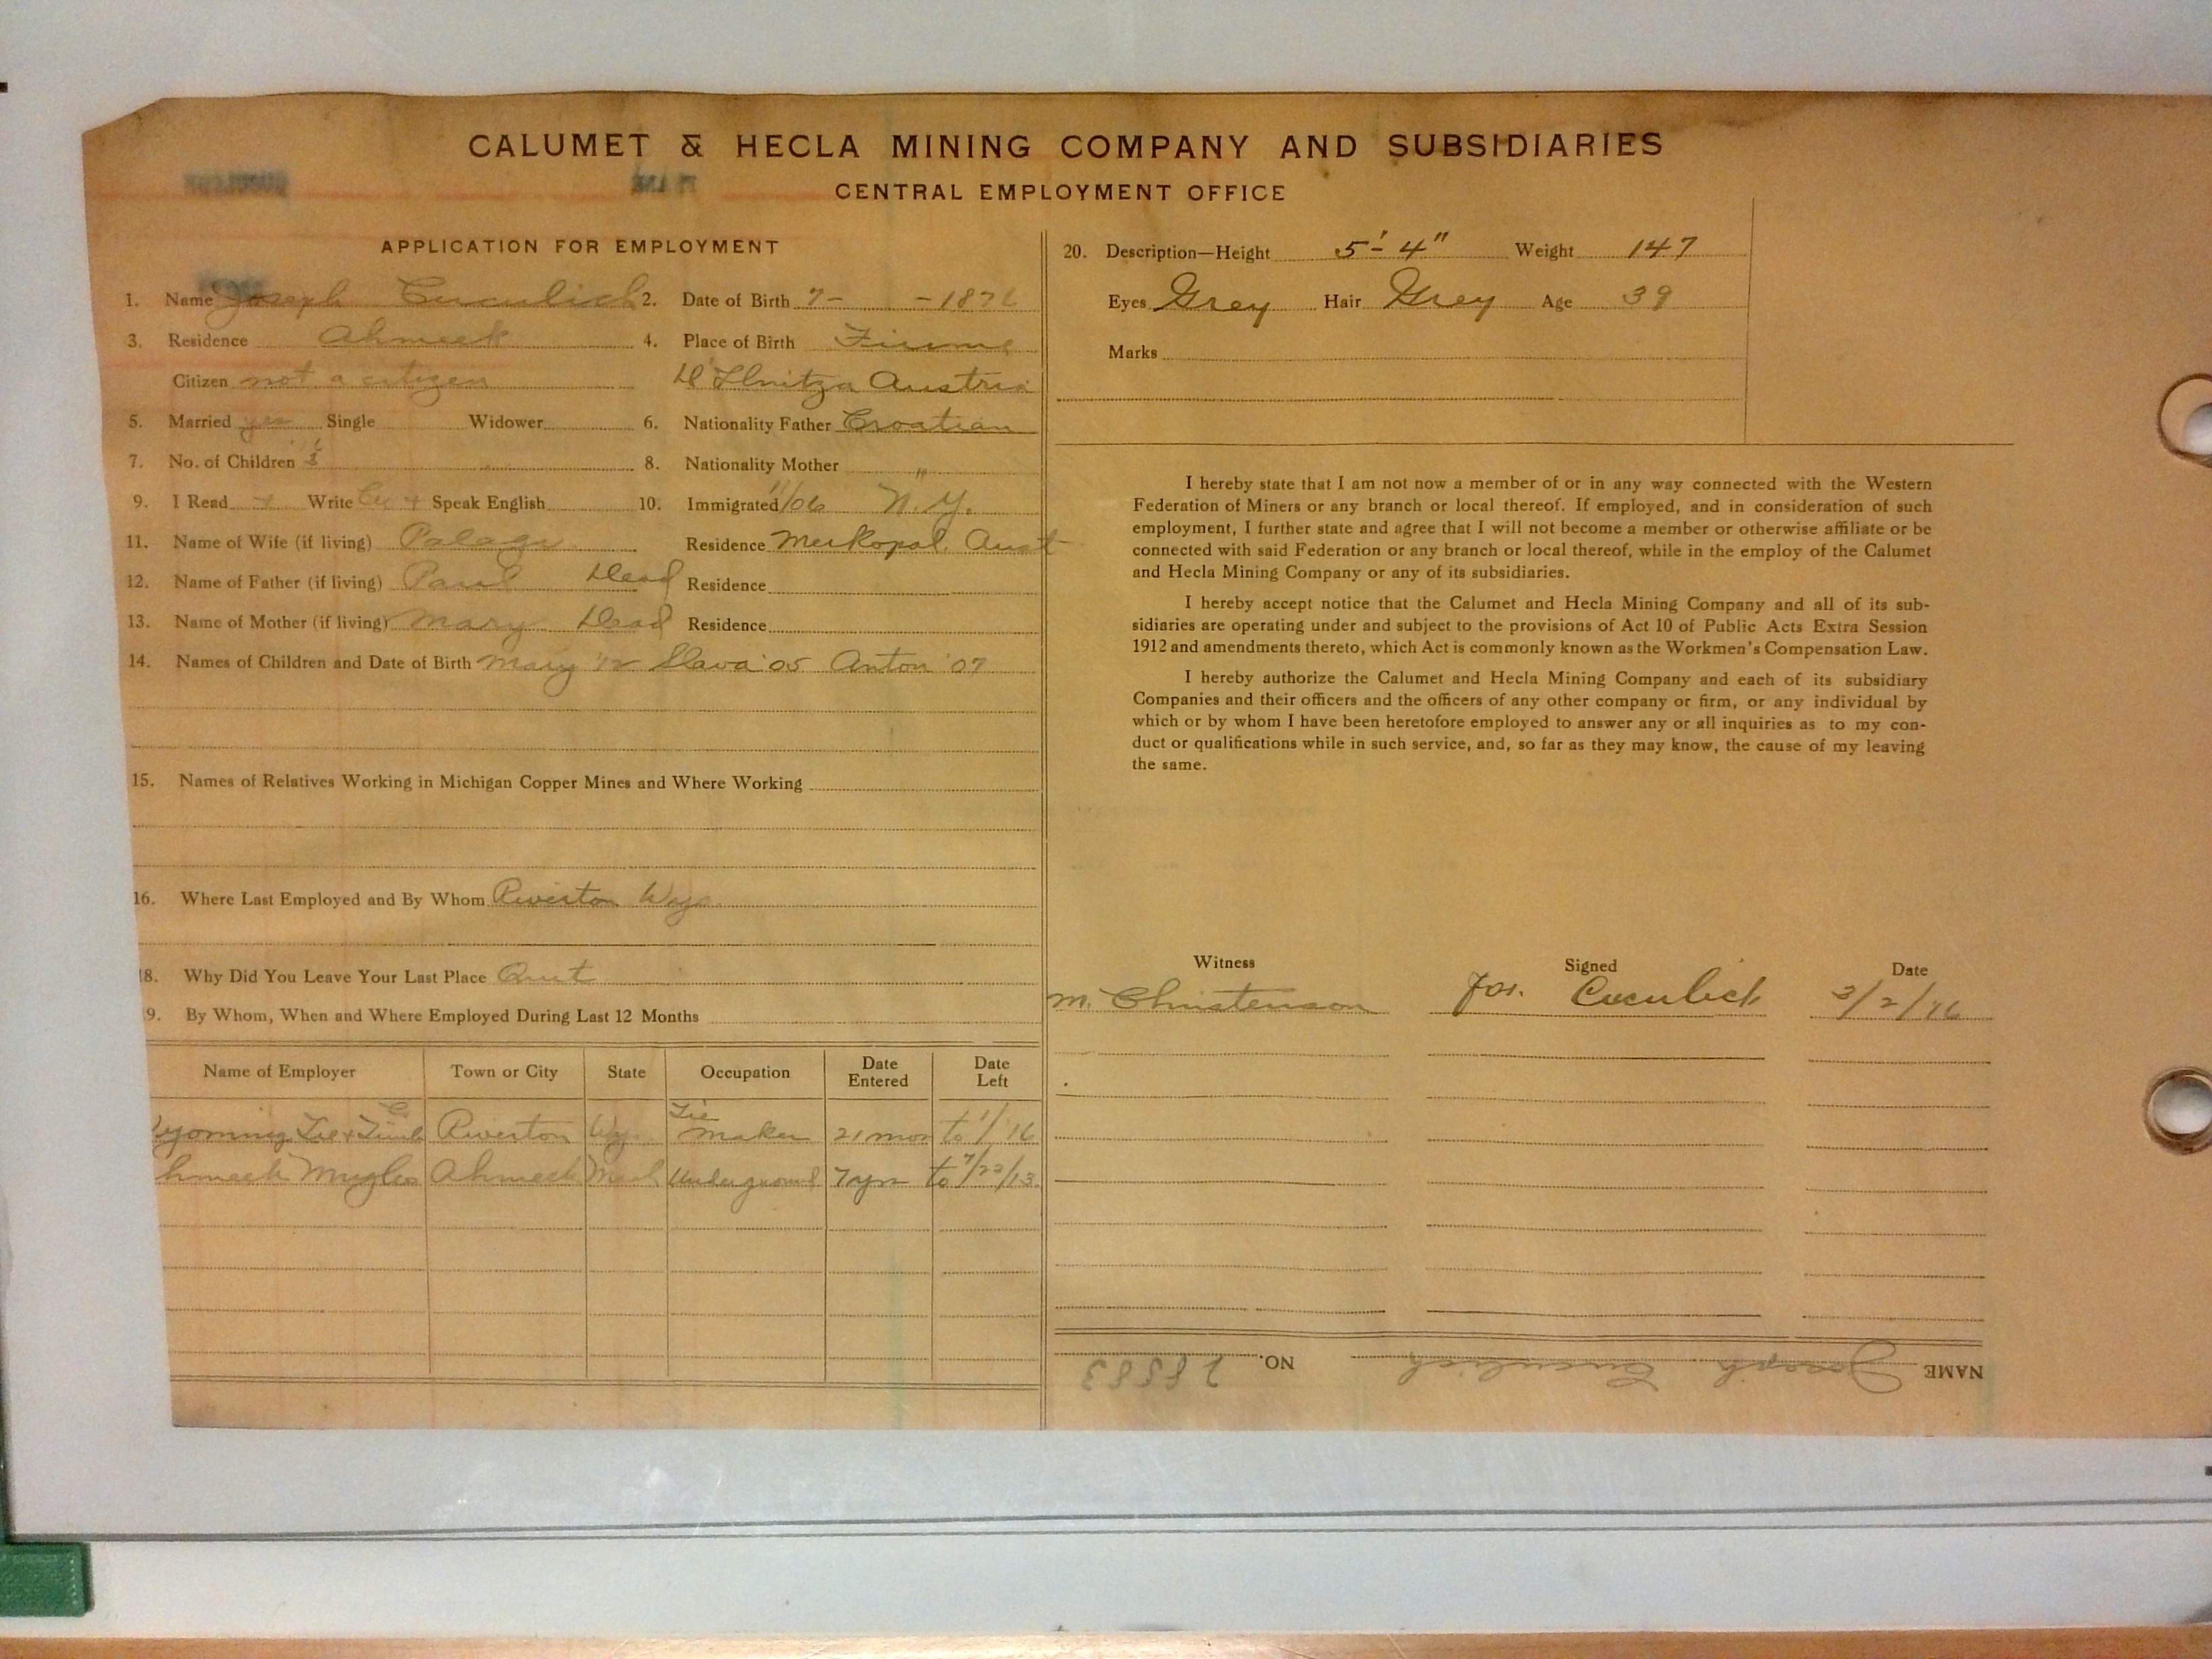 CALUMET & HECLA MINING COMPANY AND SUBSIDIARIES
CENTRAL EMPLOYMENT OFFICE
APPLICATION FOR EMPLOYMENT
1. Name Joseph Cuculich
2. Date of Birth 7- -187
3. Residence Ahmeek
4. Place of Birth Fiume
Citizen not a citizen
Austria
5. Married yes Single Widower
6. Nationality Father Croatian
7. No. of Children
8. Nationality Mother "
9. I Read + Write + Speak English
10. Immigrated 11/06 N.Y.
11. Name of Wife (if living)
Residence Aust
12. Name of Father (if living) Paul Dead
Residence
13. Name of Mother (if living) Mary Dead
Residence
14. Names of Children and Date of Birth Mary '12 Slava '05 Anton '07
15. Names of Relatives Working in Michigan Copper Mines and Where Working
16. Where Last Employed and By Whom Riverton Wyo
18. Why Did You Leave Your Last Place Quit
19. By Whom, When and Where Employed During Last 12 Months
Name of Employer Town or City State Occupation Date Entered Date Left
Wyoming Tie + Timb Co Riverton Wy. Tie maker 21 mos to 1/'16
Ahmeek Mng Co Ahmeek Mich Underground 7 yrs to 7/23/13.
20. Description—Height 5'-4" Weight 147
Eyes Grey Hair Grey Age 39
Marks
I hereby state that I am not now a member of or in any way connected with the Western
Federation of Miners or any branch or local thereof. If employed, and in consideration of such
employment, I further state and agree that I will not become a member or otherwise affiliate or be
connected with said Federation or any branch or local thereof, while in the employ of the Calumet
and Hecla Mining Company or any of its subsidiaries.
I hereby accept notice that the Calumet and Hecla Mining Company and all of its sub-
sidiaries are operating under and subject to the provisions of Act 10 of Public Acts Extra Session
1912 and amendments thereto, which Act is commonly known as the Workmen's Compensation Law.
I hereby authorize the Calumet and Hecla Mining Company and each of its subsidiary
Companies and their officers and the officers of any other company or firm, or any individual by
which or by whom I have been heretofore employed to answer any or all inquiries as to my con-
duct or qualifications while in such service, and, so far as they may know, the cause of my leaving
the same.
Witness Signed Date
M. Christenson Jos. Cuculich 3/2/'16
NAME Joseph Cuculich NO. 28583